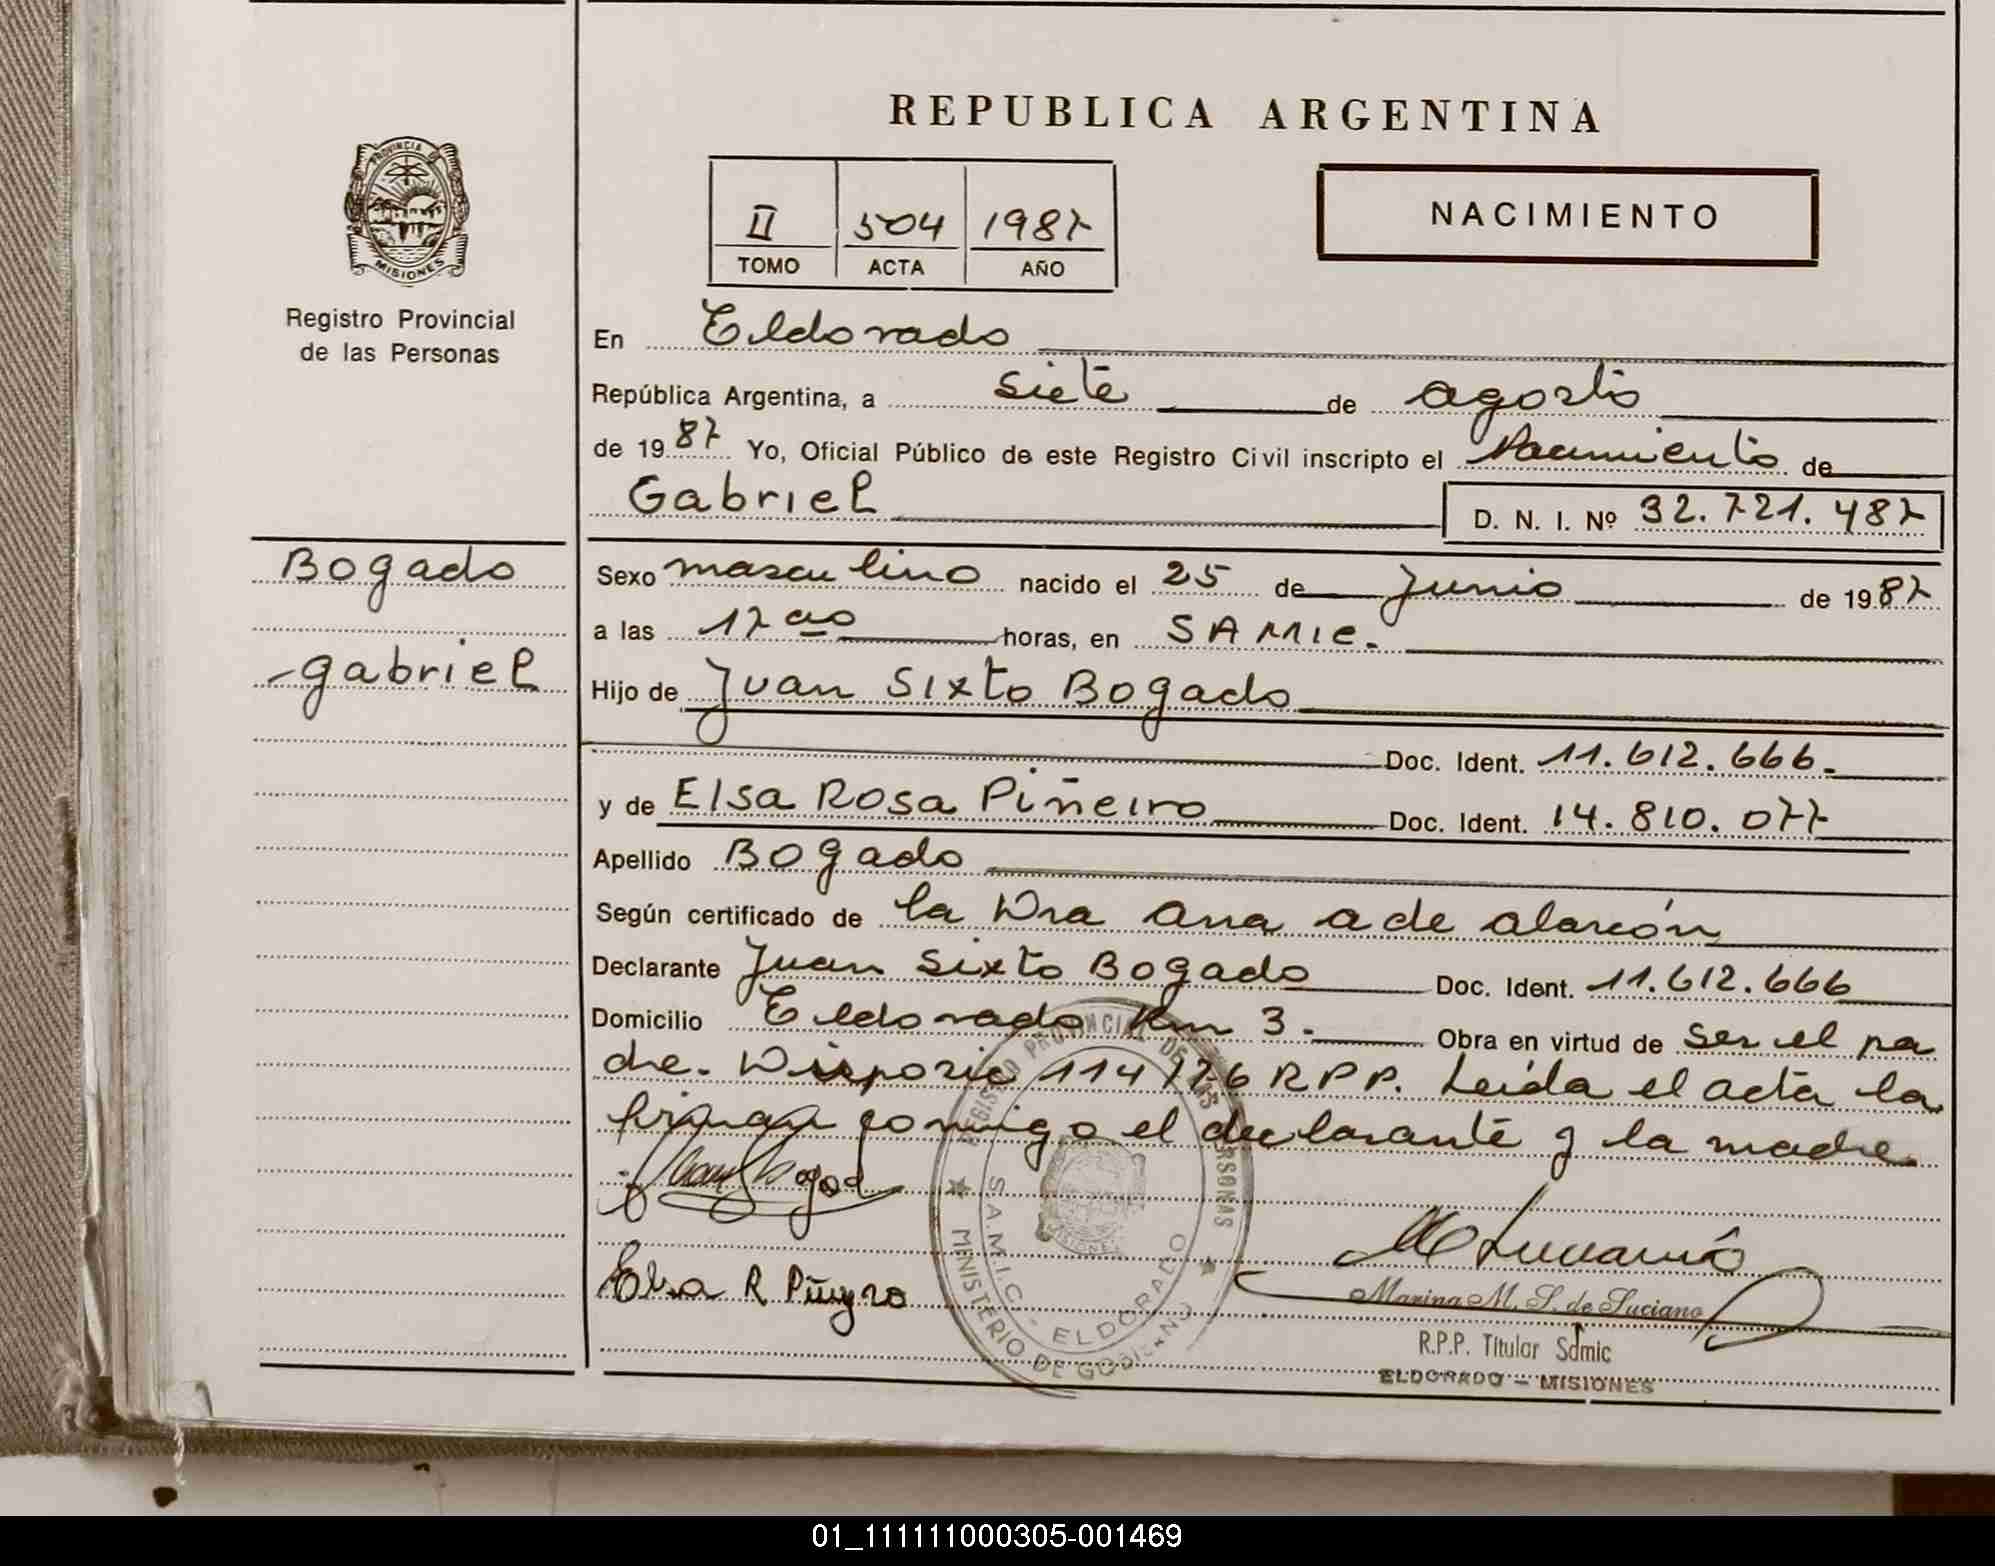 REPUBLICA ARGENTINA
PROVINCIA DE
MISIONES
Registro Provincial
de las Personas
II 504 1987
TOMO ACTA AÑO
NACIMIENTO
En Eldorado
República Argentina, a siete de agosto
de 1987 Yo, Oficial Público de este Registro Civil inscripto el Nacimiento de
Gabriel D. N. I. Nº 32.721.487
Bogado
Gabriel
Sexo masculino nacido el 25 de Junio de 1987
a las 17 00 horas, en SAMIC.
Hijo de Juan Sixto Bogado
Doc. Ident. 11.612.666.
y de Elsa Rosa Piñeiro Doc. Ident. 14.810.077
Apellido Bogado
Según certificado de la Dra Ana A de Alarcón
Declarante Juan Sixto Bogado Doc. Ident. 11.612.666
Domicilio Eldorado Km 3. Obra en virtud de ser el pa
dre. Disposic 114/76 RPP. Leída el acta la
firman conmigo el declarante y la madre
REGISTRO PROVINCIAL DE LAS PERSONAS
MINISTERIO DE GOBIERNO
S.A.M.I.C. - ELDORADO
MISIONES
Elsa R Piñeyro
Marina M. S. de Luciano
R.P.P. Titular Samic
ELDORADO - MISIONES
01_111111000305-001469